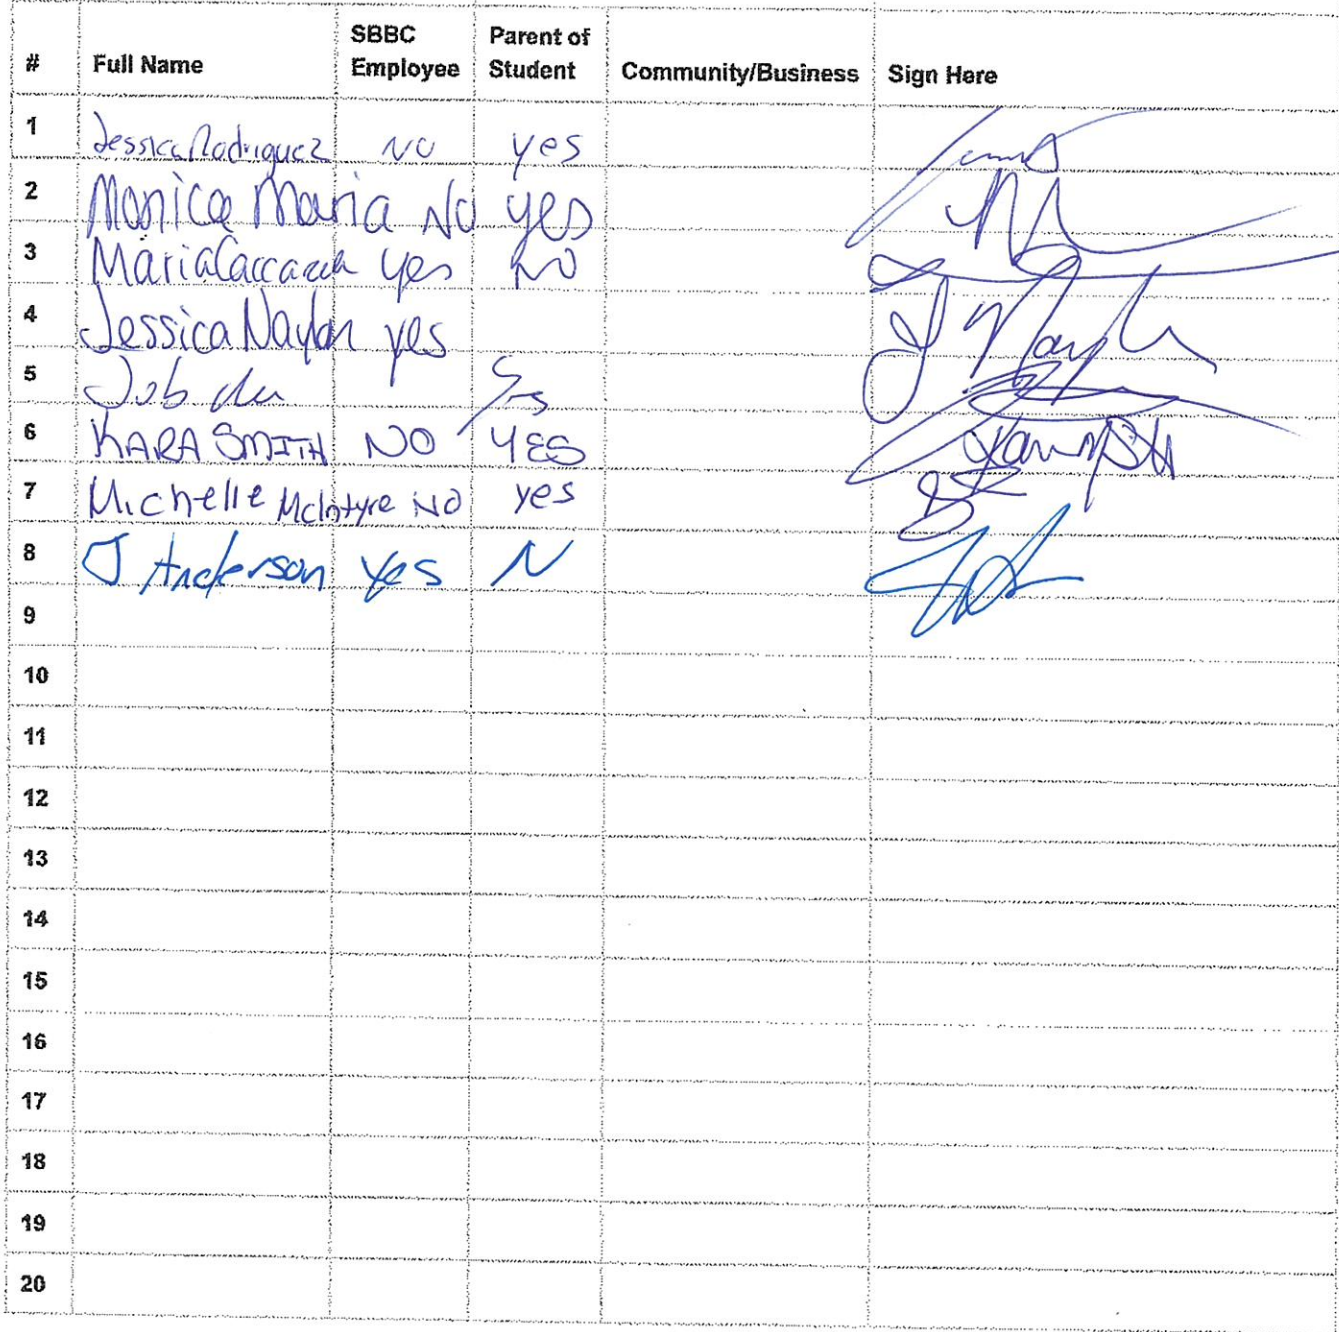 # Full Name SBBC Employee Parent of Student Community/Business Sign Here
1 Jessica Rodriguez NO yes
2 Monica Maria No yes
3 Maria yes NO
4 Jessica Naylon yes
5 Job yes
6 KARA SMITH NO YES
7 Michelle McIntyre NO yes
8 J Anderson Yes N
9
10
11
12
13
14
15
16
17
18
19
20